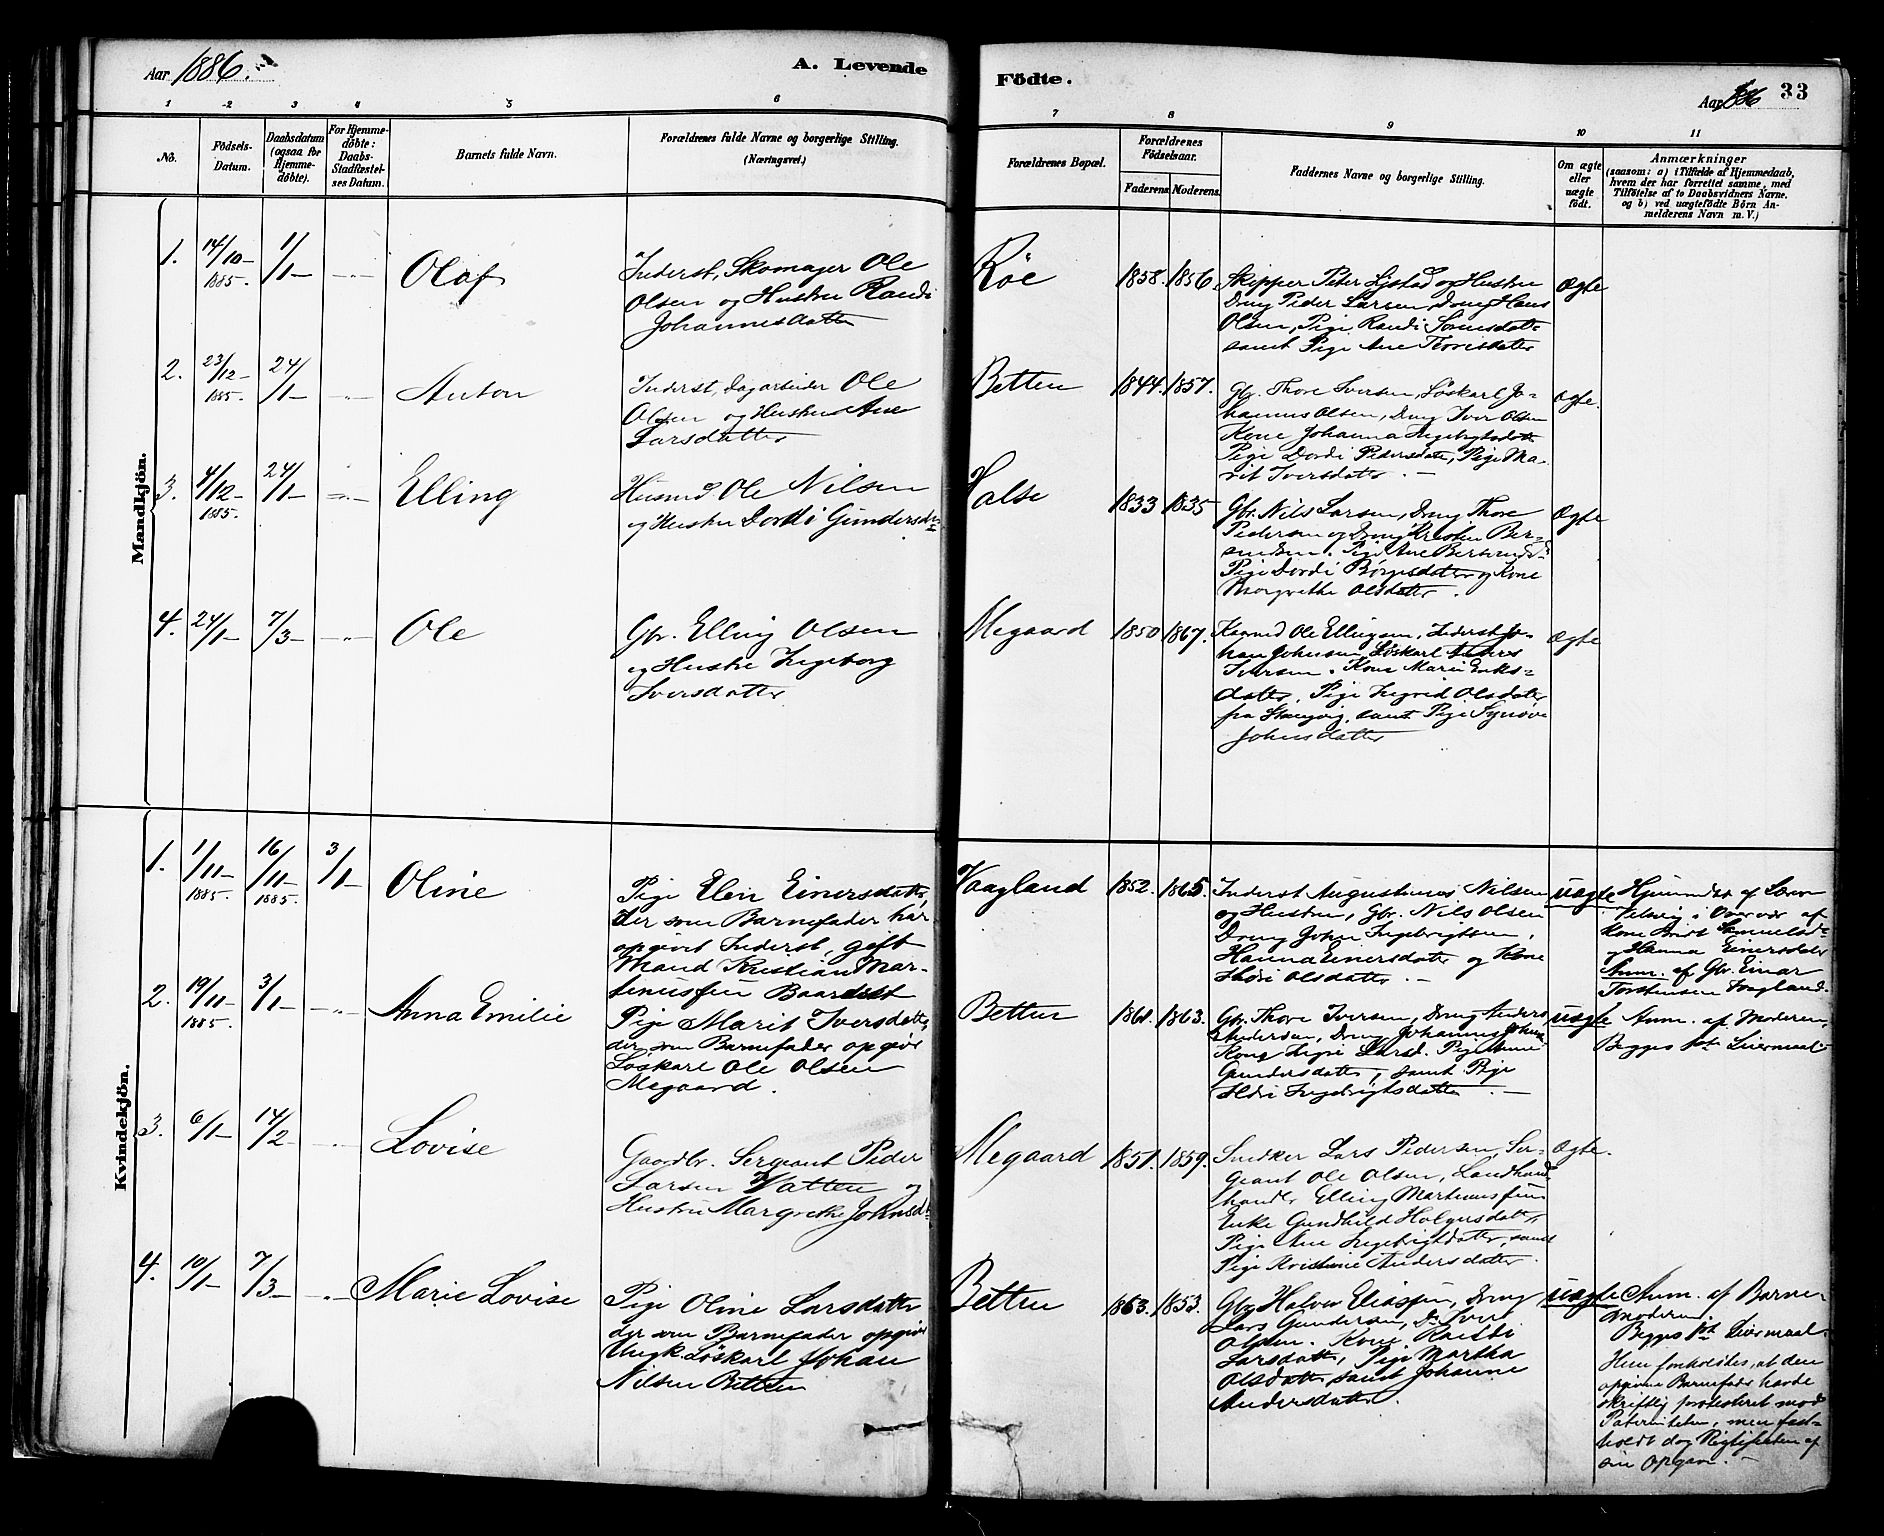 Aar 1886.
A. Levende
Födte.
Aar 1886
33
1 2 3 4 5 6 7 8 9 10 11
No.
Födsels-
Datum.
Daabsdatum
(ogsaa for
Hjemme-
döbte).
For Hjemme-
döbte:
Daabs-
Stadfæstel-
ses Datum.
Barnets fulde Navn.
Forældrenes fulde Navne og borgerlige Stilling.
(Næringsvei.)
Forældrenes Bopæl.
Forældrenes
Födselsaar.
Faderens. Moderens.
Faddernes Navne og borgerlige Stilling.
Om ægte
eller
uægte
födt.
Anmærkninger
(saasom: a) i Tilfælde af Hjemmedaab,
hvem der har forrettet samme, med
Tilföielse af to Daabsvidners Navne,
og b) ved uægtefödte Börn An-
melderens Navn m. V.)
Mandkjön.
1.
14/10
1885.
1/1
Olaf
Inderst, Skomager Ole
Olsen og Hustru Randi
Johannesdatter
Röe
1858. 1856.
Skipper Peter og Hustru
Dreng Peder Larsen, Dreng Hans
Olsen, Pige Randi
samt Pige Ane
Ægte
2.
23/12
1885.
24/1
Anton
Inderst, Dagarbeider Ole
Olsen og Hustru Ane
Larsdatter
Betten
1844. 1857.
Gbr. Thore Iversen, Löskarl Jo-
hannes Olsen, Dreng Iver Olsen
Kone Johanna Ingebrigtsdatter
Pige Dordi Pedersdatter, Pige Ma-
rit Iversdatter. —
Ægte.
3.
4/12
1885.
24/1
Elling
Husmd. Ole Nilsen
og Hustru Dordi Gundersdtr
Halse
1833 1835
Gbr. Nils Larsen, Dreng Thore
Pedersen og Dreng Kristen Ber-
sendsen. Pige Ane
Pige Dordi Börgesdatter og Kone
Margrethe Olsdatter.
Ægte
4.
24/1
7/3
Ole
Gbr. Elling Olsen
og Hustru Ingeborg
Iversdatter
Megaard
1850 1867.
Ole Ellingsen, Inderst Jo-
han Johnsen, Löskarl
Iversen. Kone Marie Eriks-
datter, Pige Ingrid Olsdatter
fra samt Pige Synöve
Johnsdatter
Ægte
Kvindekjön.
1.
1/11
1885.
16/11
1885.
3/1
Oline
Pige Elen Einersdatter,
der som Barnefader har
opgivet Inderst, gift
Mand Kristian Mar-
tinussen
Vaagland
1852. 1865.
Inderst Augustinus Nilsen
og Hustru, Gbr. Nils Olsen
Dreng John Ingebrigtsen,
Hanna Einersdatter og Kone
Ildri Olsdatter. —
uægte
Hjemmedöbt af
i Overvær af
Kone Berit
og Hanna Einersdatter
Anm. af Gbr. Einar
Torstensen Vaagland.
2.
19/11
1885.
3/1
Anna Emilie
Pige Marit Iversdatter,
der som Barnefader opgiver
Löskarl Ole Olsen
Megaard.
Betten
1861. 1863.
Gbr. Thore Iversen, Dreng Anders
Andersen, Dreng Johannes
Kone Larsd. Pige
Gundersdatter, samt Pige
Ildri Ingebrigtsdatter. —
uægte
Anm. af Moderen,
Begges 1ste Leiermaal
3.
6/1
14/2
Lovise
Gaardbr. Sergeant Peder
Larsen Vatten og
Hustru Margrethe Johnsdtr
Megaard
1851. 1859.
Snedker Lars Pedersen, Ser-
geant Ole Olsen, Landhand-
handler Elling Martinussen
Enke Gundhild Holgersdatter,
Pige Ane Ingebrigtdatter, samt
Pige Kristine Andersdatter.
Ægte.
4.
10/1
7/3
Marie Lovise
Pige Oline Larsdatter
der som Barnefader opgiver
Ungk. Löskarl Johan
Nilsen Betten
Betten
1863. 1853.
Gbr. Halvor Eliassen, Dreng
Lars Gundersen, Do Iver
Olsen. Kone
Larsdatter, Pige Martha
Olsdatter, samt Johanne
Andersdatter.
uægte
Anm. af Barne-
moderen.
Begges 1ste Leiermaal.
Hun foreholdtes, at den
opgivne Barnefader havde
skriftlig protesteret mod
Paterniteten, men fast-
holdt dog Rigtigheden af
sin Opgave. —